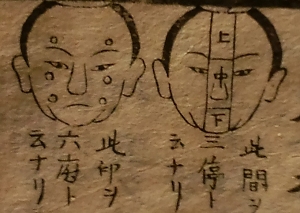 上
中
下
此間ヲ
三停ト
云ナリ
此印ヲ
六府ト
云ナリ